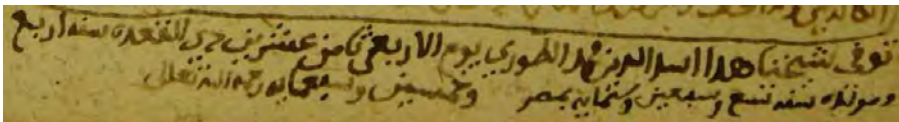 توفي شيخنا هذا اسد الدين محمد الطوري يوم الاربعى ثامن عشرين ذي القعده سنه اربع
وخمسين وسبعمايه رحمه الله تعالى
ومولده سنه تسع وسبعين وستمايه بمصر